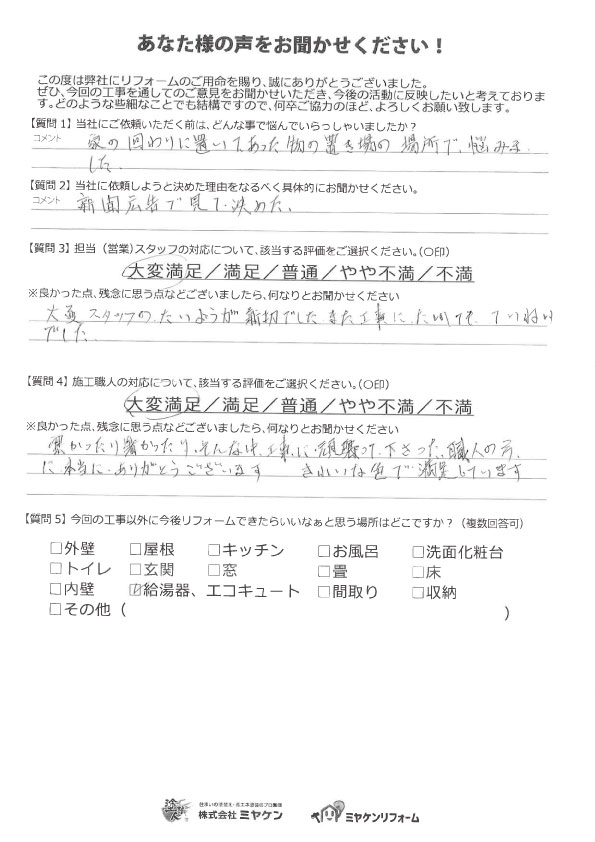 あなた様の声をお聞かせください！
この度は弊社にリフォームのご用命を賜り、誠にありがとうございました。
ぜひ、今回の工事を通してのご意見をお聞かせいただき、今後の活動に反映したいと考えておりま
す。どのような些細なことでも結構ですので、何卒ご協力のほど、よろしくお願い致します。
【質問 1】当社にご依頼いただく前は、どんな事で悩んでいらっしゃいましたか？
コメント 家の回わりに置いてあった物の置き場の場所で、悩みま
した。
【質問 2】当社に依頼しようと決めた理由をなるべく具体的にお聞かせください。
コメント 新聞広告で見て決めた。
【質問 3】担当（営業）スタッフの対応について、該当する評価をご選択ください。（〇印）
大変満足／満足／普通／やや不満／不満
※良かった点、残念に思う点などございましたら、何なりとお聞かせください
大変スタッフのたいようが親切でした また工事に ていねい
でした
【質問 4】施工職人の対応について、該当する評価をご選択ください。（〇印）
大変満足／満足／普通／やや不満／不満
※良かった点、残念に思う点などございましたら、何なりとお聞かせください
寒かったり暑かったり、そんな中、工事に頑張って下さった、職人の方
に本当に、ありがとうございます きれいな色で満足しています
【質問 5】今回の工事以外に今後リフォームできたらいいなぁと思う場所はどこですか？（複数回答可）
□外壁 □屋根 □キッチン □お風呂 □洗面化粧台
□トイレ □玄関 □窓 □畳 □床
□内壁 ☑給湯器、エコキュート □間取り □収納
□その他（ ）
株式会社ミヤケン ミヤケンリフォーム